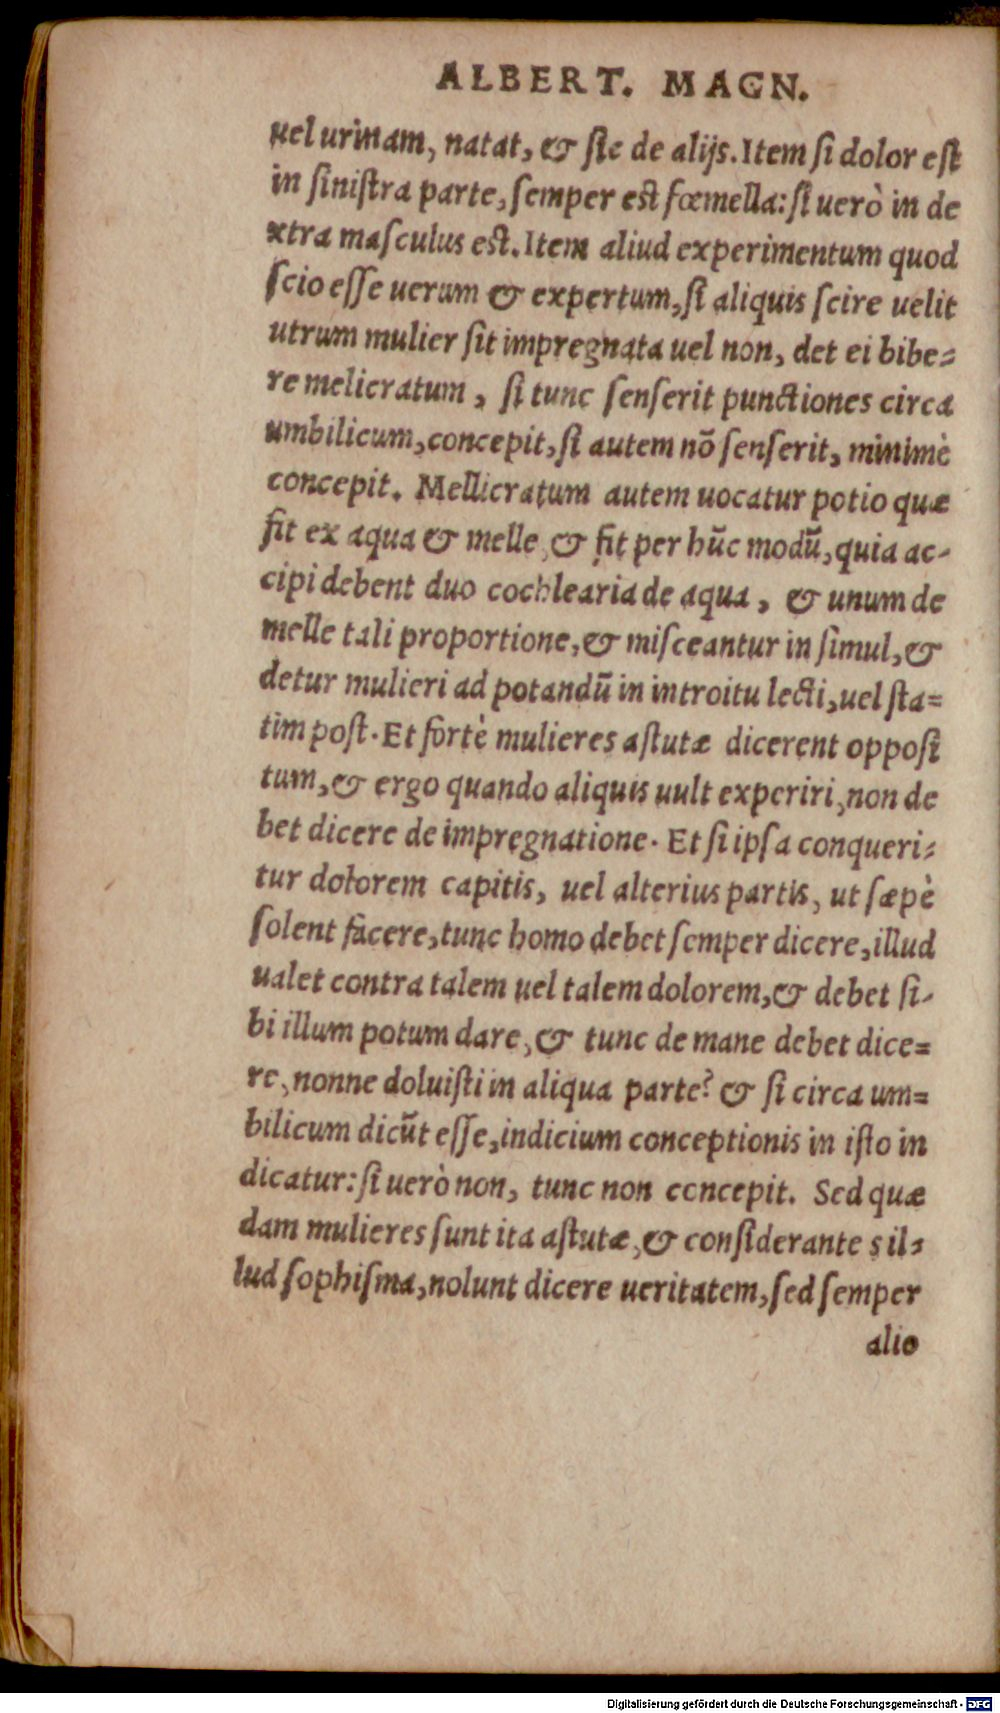 ALBERT. MAGN.
uel urinam, natat, & ſic de alijs. Item ſi dolor eſt
in ſiniſtra parte, ſemper eſt fœmella: ſi uerò in de
xtra maſculus eſt. Item aliud experimentum quod
ſcio eſſe uerum & expertum, ſi aliquis ſcire uelit
utrum mulier ſit impregnata uel non, det ei bibe=
re melicratum, ſi tunc ſenſerit punctiones circa
umbilicum, concepit, ſi autem nō ſenſerit, minimè
concepit. Mellicratum autem uocatur potio quæ
fit ex aqua & melle, & fit per hūc modū, quia ac-
cipi debent duo cochlearia de aqua, & unum de
melle tali proportione, & miſceantur in ſimul, &
detur mulieri ad potandū in introitu lecti, uel ſta=
tim poſt. Et fortè mulieres aſtutæ dicerent oppoſi
tum, & ergo quando aliquis uult experiri, non de
bet dicere de impregnatione. Et ſi ipſa conqueri=
tur dolorem capitis, uel alterius partis, ut ſæpè
ſolent facere, tunc homo debet ſemper dicere, illud
ualet contra talem uel talem dolorem, & debet ſi-
bi illum potum dare, & tunc de mane debet dice=
re, nonne doluiſti in aliqua parte? & ſi circa um=
bilicum dicūt eſſe, indicium conceptionis in iſto in
dicatur: ſi uerò non, tunc non concepit. Sed quæ
dam mulieres ſunt ita aſtutæ, & conſiderantes il=
lud ſophiſma, nolunt dicere ueritatem, ſed ſemper
alio
Digitalisierung gefördert durch die Deutsche Forschungsgemeinschaft - DFG